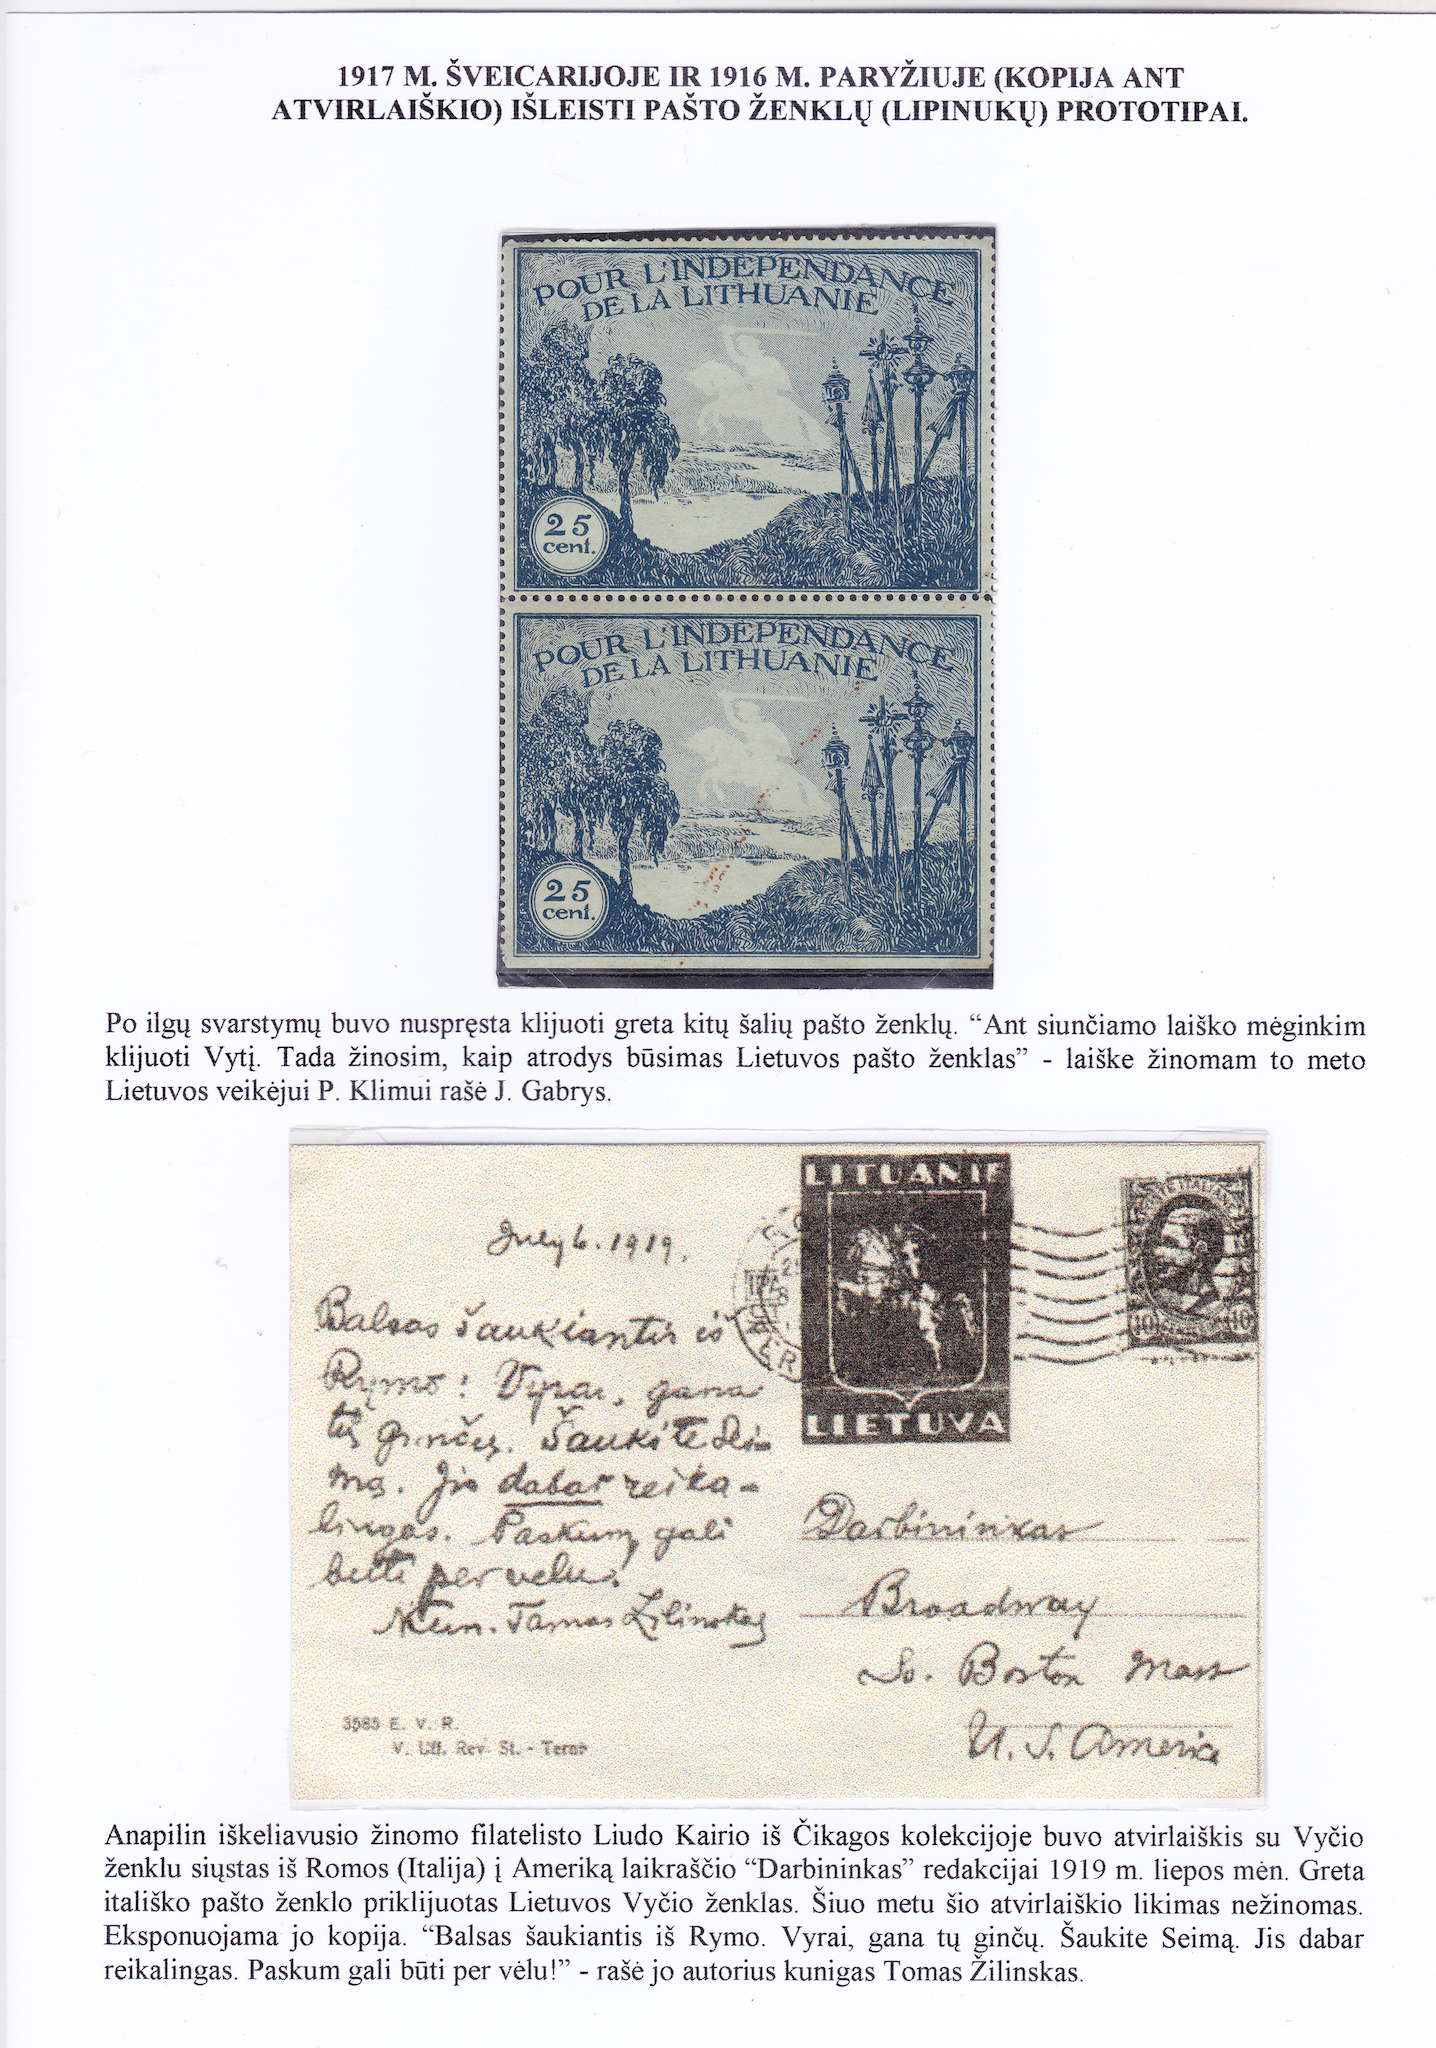 1917 M. ŠVEICARIJOJE IR 1916 M. PARYŽIUJE (KOPIJA ANT
ATVIRLAIŠKIO) IŠLEISTI PAŠTO ŽENKLŲ (LIPINUKŲ) PROTOTIPAI.
POUR L'INDEPENDANCE
DE LA LITHUANIE
25
cent.
POUR L'INDEPENDANCE
DE LA LITHUANIE
25
cent.
Po ilgų svarstymų buvo nuspręsta klijuoti greta kitų šalių pašto ženklų. “Ant siunčiamo laiško mėginkim
klijuoti Vytį. Tada žinosim, kaip atrodys būsimas Lietuvos pašto ženklas” - laiške žinomam to meto
Lietuvos veikėjui P. Klimui rašė J. Gabrys.
LITUANIE
LIETUVA
10 10
July 6. 1919.
Balsas šaukiantis iš
Rymo: Vyrai, gana
tų ginčų. Šaukite Sei-
mą. Jis dabar reika-
lingas. Paskum gali
buti per velu.
Kun. Tamas Žilinskas
3585 E. V. R.
V. Uff. Rev. St. - Terni
Darbininkas
Broadway
So. Boston Mass
U. S. America
Anapilin iškeliavusio žinomo filatelisto Liudo Kairio iš Čikagos kolekcijoje buvo atvirlaiškis su Vyčio
ženklu siųstas iš Romos (Italija) į Ameriką laikraščio “Darbininkas” redakcijai 1919 m. liepos mėn. Greta
itališko pašto ženklo priklijuotas Lietuvos Vyčio ženklas. Šiuo metu šio atvirlaiškio likimas nežinomas.
Eksponuojama jo kopija. “Balsas šaukiantis iš Rymo. Vyrai, gana tų ginčų. Šaukite Seimą. Jis dabar
reikalingas. Paskum gali būti per vėlu!” - rašė jo autorius kunigas Tomas Žilinskas.